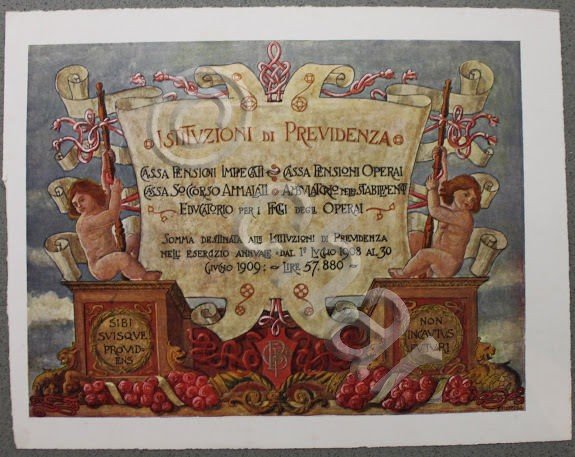 ISTITVZIONI DI PREVIDENZA
CASSA PENSIONI IMPIEGATI CASSA PENSIONI OPERAI
CASSA SOCCORSO AMMALATI AMBVLATORIO NEGLI STABILIMENTI
EDVCATORIO PER I FIGLI DEGLI OPERAI
SOMMA DESTINATA ALLE ISTITVZIONI DI PREVIDENZA
NELL' ESERCIZIO ANNVALE DAL 1º LVGLIO 1908 AL 30
GIVGNO 1909: LIRE 57.880
SIBI
SVISQVE
PROVID-
ENS
NON
INCAVTVS
FVTVRI